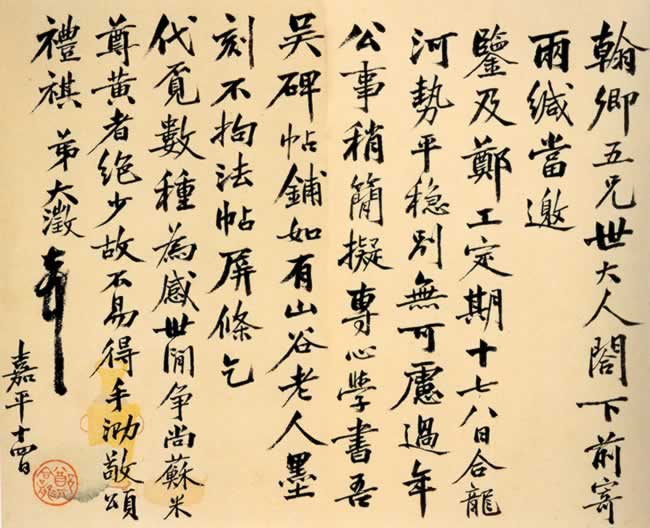 翰卿五兄世大人閣下前寄
兩緘當邀
鑒及鄭工定期十七八日合龍
河勢平穩別無可慮過年
公事稍簡擬專心學書吾
吳碑帖鋪如有山谷老人墨
刻不拘法帖屏條乞
代覓數種為感世間爭尚蘇米
尊黃者絕少故不易得手泐敬頌
禮祺 弟大澂
嘉平十四日